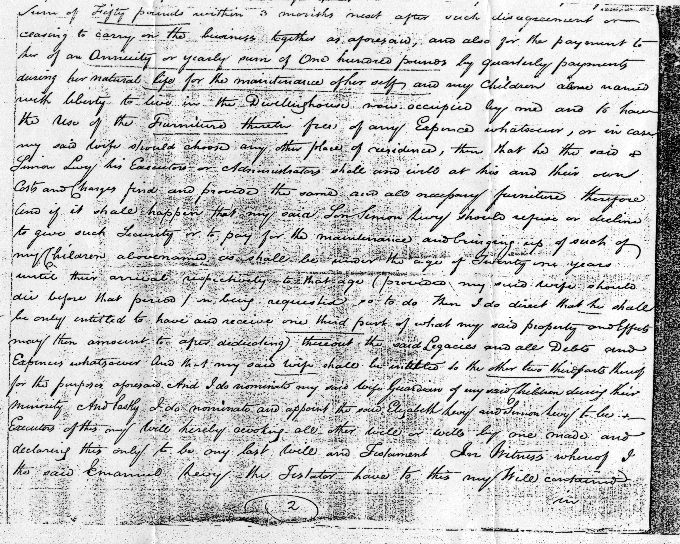 Sum of Fifty pounds within 3 months next after such disagreement or
ceasing to carry on the business together as aforesaid, and also for the payment to
her of an Annuity or yearly sum of One hundred pounds by quarterly payments
during her natural life for the maintenance of her self and my Children above named
with liberty to live in the Dwellinghouse now occupied by me and to have
the Use of the Furniture therein free of any Expence whatsoever, or in case
my said wife should choose any other place of residence, then that he the said
Simon Levy his Executors or Administrators shall and will at his and their own
Costs and Charges find and provide the same and all necessary furniture therefore
And if it shall happen that my said Son Simon Levy should refuse or decline
to give such Security or to pay for the maintenance and bringing up of such of
my Children abovenamed as shall be under the age of Twenty one years
until their arrival respectively to that age (provided my said wife should
die before that period) in being requested so to do Then I do direct that he shall
be only entitled to have and receive one third part of what my said property and Effects
may then amount to after deducting thereout the said Legacies and all Debts and
Expences whatsoever And that my said wife shall be entitled to the other two third parts thereof
for the purposes aforesaid. And I do nominate my said wife Guardian of my said Children during their
minority And lastly I do nominate and appoint the said Elizabeth Levy and Simon Levy to be
Executors of this my Will hereby revoking all other will or wills by me made and
declaring this only to be my last Will and Testament In Witness whereof I
the said Emanuel Levy the Testator have to this my Will contained
in
2